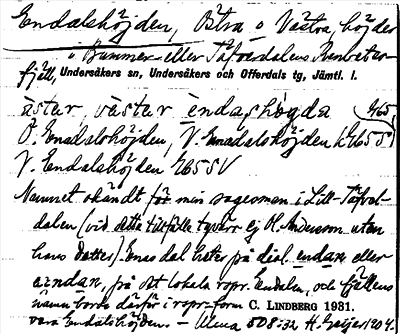 Endalshöjden, Östra o Västra, höjder
i Bunner- eller Täfverdalens Renbetes-
fjäll, Undersåkers sn, Undersåkers och Offerdals tg, Jämtl. l.
äster, väster èndashögda
Ö. Endalshöjden, V. Endalshöjden k 465 S
V. Endalshöjden 465 SV
Namnet okändt för min sagesman i Lill-Täfvel-
dalen (vid detta tillfälle tyvärr ej Ol. Andersson utan
hans dotter). Enas dal heter på dial. endan eller
ændan, på det lokala rspr. Endalen, och fjällens
namn borde därför i rspr-form C. LINDBERG 1931.
vara Endalshöjden. – Ulma 508:32 H. Geijer 1904.